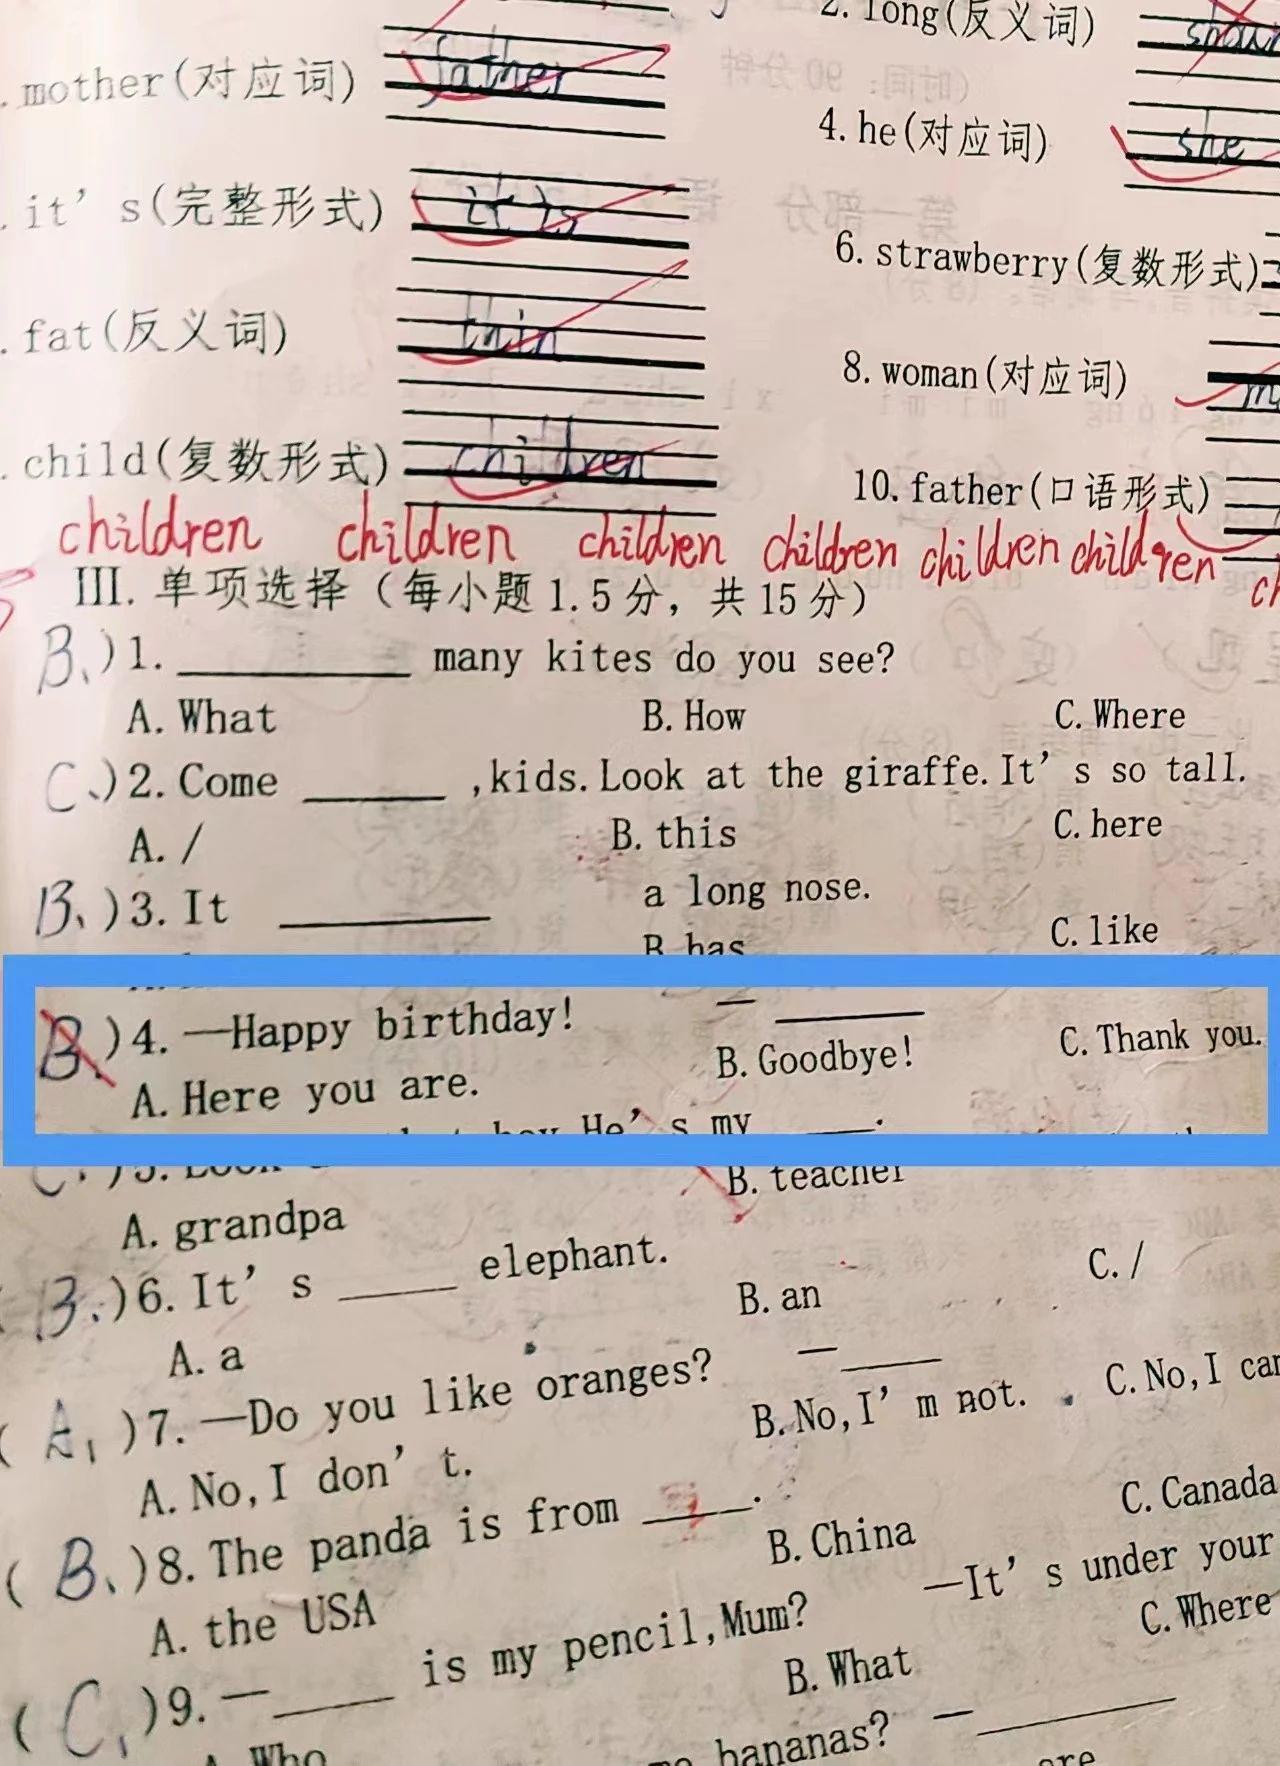 2. long(反义词)
.mother(对应词) father
4. he(对应词) she
.it's(完整形式) it is
6. strawberry(复数形式)
.fat(反义词) thin
8. woman(对应词)
.child(复数形式) children
10. father(口语形式)
children children children children children children
III. 单项选择 (每小题1.5分, 共15分)
B.)1. __________ many kites do you see?
A. What B. How C. Where
C.)2. Come ______ ,kids. Look at the giraffe. It's so tall.
A. / B. this C. here
B.)3. It ________ a long nose.
B. has C. like
B.)4. —Happy birthday! —______
A. Here you are. B. Goodbye! C. Thank you.
C.)5. Look boy. He's my ____.
A. grandpa B. teacher
B.)6. It's _____ elephant.
A. a B. an C. /
( A.)7. —Do you like oranges? —____
A. No, I don't. B. No, I'm not. C. No, I
( B.)8. The panda is from ____.
A. the USA B. China C. Canada
( C.)9. —_____ is my pencil, Mum? —It's under your
A. Who B. What C. Where
bananas? —________